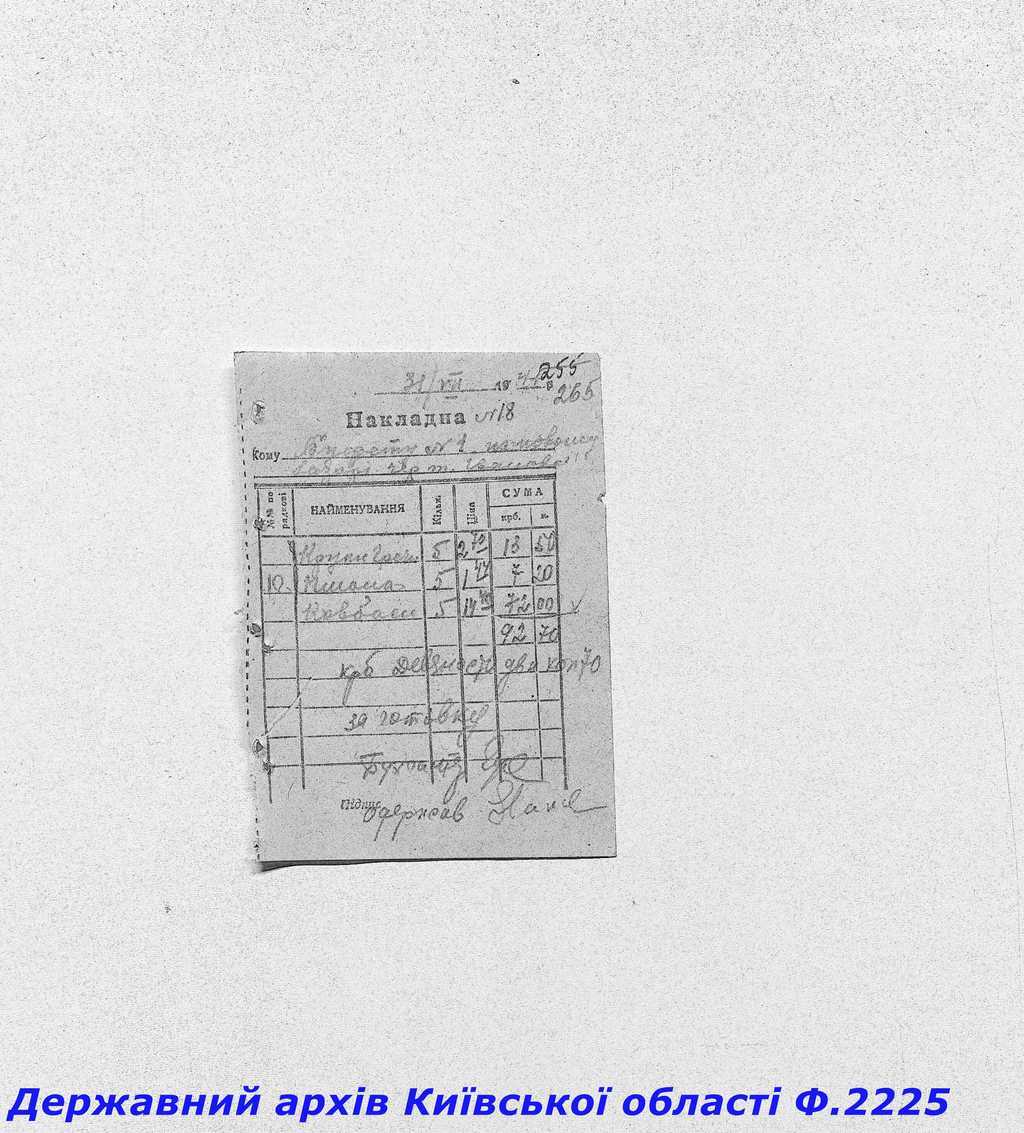 255
31/VII 1941 в
265
Накладна №18
Кому Буфету № 1
чер т.
№№ по рядкові НАЙМЕНУВАННЯ Кільк. Ціна СУМА
крб. к.
Крупи греч. 5 2 70 13 50
10. Пшона 5 1 44 7 20
Ковбаси 5 14 40 72 00
92 70
крб девяности два коп 70
за готовку
Підпис
одержав
Державний архів Київської області Ф.2225